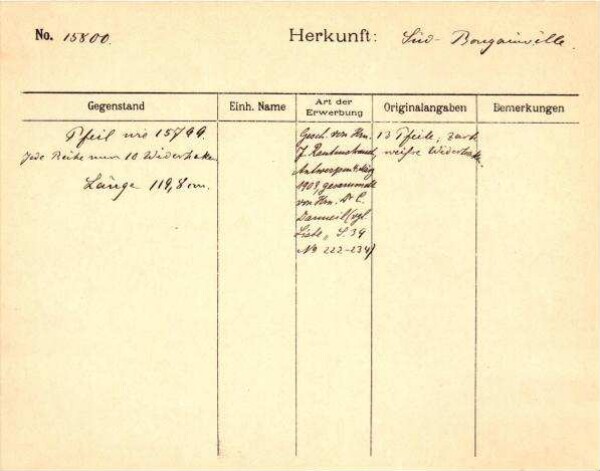 No. 15800. Herkunft: Süd-Bougainville.
Gegenstand Einh. Name Art der Erwerbung Originalangaben Bemerkungen
Pfeil wie 15799.
Jede Reihe nur 10 Widerhaken
Länge 119,8 cm.
Gesch. von Hrn.
J. Rautenstrauch,
Antwerpen
1909, gesammelt
von Hrn. Dr. C.
(vgl.
Liste, S. 39
No 222-234)
13 Pfeile,
weisse Widerhaken